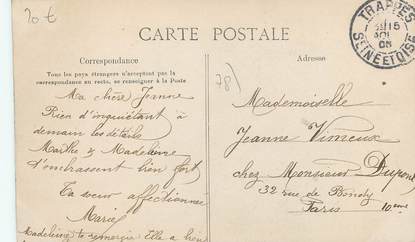 20 €
TRAPPES
SEINE ET OISE
CARTE POSTALE
Correspondance
Tous les pays étrangers n'acceptent pas la
correspondance au recto, se renseigner à la Poste
Adresse
78)
Ma chère Jeanne
Rien d'inquiétant à
demain les détails
Marthe & Madeleine
t'embrassent bien fort
Ta sœur affectionnée
Marie
Madeleine te remercie Elle a bien
Mademoiselle
Jeanne Vimeux
chez Monsieur Dupont
32 rue de Bondy
Paris 10eme